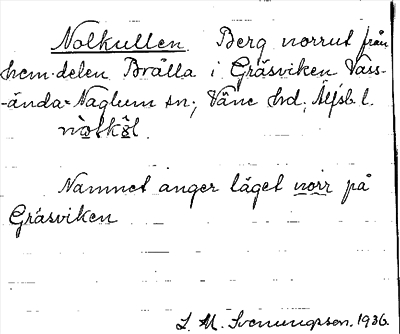 Nolkullen Berg norrut från
hem.delen Brälla i Gräsviken Vass-
-ända-Naglum sn; Väne hd; Älfsb. l.
Namnet anger läget norr på
Gräsviken
L. M. Svenungsson. 1936.